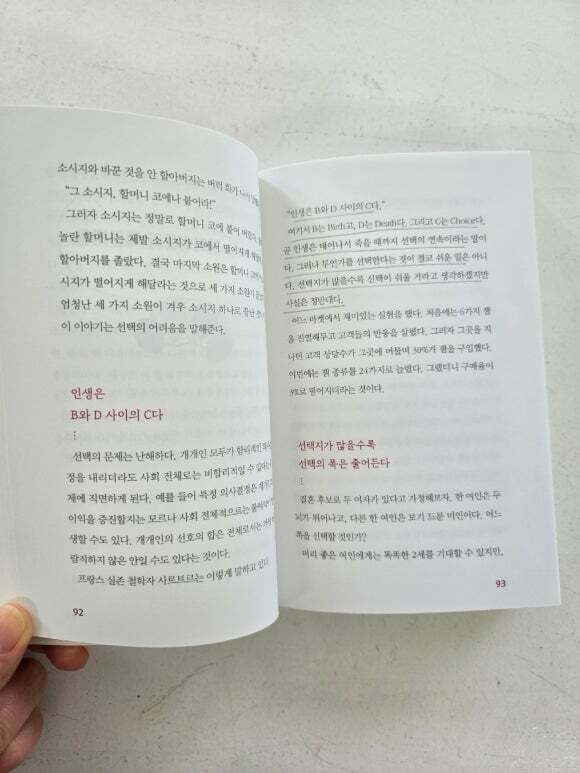 소시지와 바꾼 것을 안 할아버지는 버럭 화가 나서
“그 소시지, 할머니 코에나 붙어라!”
그러자 소시지는 정말로 할머니 코에 붙어 버렸다.
놀란 할머니는 제발 소시지가 코에서 떨어지게
할아버지를 졸랐다. 결국 마지막 소원은 할머니
시지가 떨어지게 해달라는 것으로 세 가지 소원
엄청난 세 가지 소원이 겨우 소시지 하나로 끝난
이 이야기는 선택의 어려움을 말해준다.
인생은
B와 D 사이의 C다
선택의 문제는 난해하다. 개개인 모두가 합리적인
정을 내리더라도 사회 전체로는 비합리적일 수 있다는
제에 직면하게 된다. 예를 들어 특정 의사결정은
이익을 증진할지는 모르나 사회 전체적으로는
생할 수도 있다. 개개인의 선호의 합은 전체로서는
람직하지 않은 안일 수도 있다는 것이다.
프랑스 실존 철학자 사르트르는 이렇게 말하고 있다.
92
“인생은 B와 D 사이의 C다.”
여기서 B는 Birth고, D는 Death다. 그리고 C는 Choice다.
곧 인생은 태어나서 죽을 때까지 선택의 연속이라는 말이
다. 그러나 무언가를 선택한다는 것이 결코 쉬운 일은 아니
다. 선택지가 많을수록 선택이 쉬울 거라고 생각하겠지만
사실은 정반대다.
어느 마켓에서 재미있는 실험을 했다. 처음에는 6가지 잼
을 진열해두고 고객들의 반응을 살폈다. 그러자 그곳을 지
나던 고객 상당수가 그곳에 머물며 30%가 잼을 구입했다.
이번에는 잼 종류를 24가지로 늘렸다. 그랬더니 구매율이
3%로 떨어지더라는 것이다.
선택지가 많을수록
선택의 폭은 줄어든다
결혼 후보로 두 여자가 있다고 가정해보자. 한 여인은 두
뇌가 뛰어나고, 다른 한 여인은 보기 드문 미인이다. 어느
쪽을 선택할 것인가?
머리 좋은 여인에게는 똑똑한 2세를 기대할 수 있지만,
93